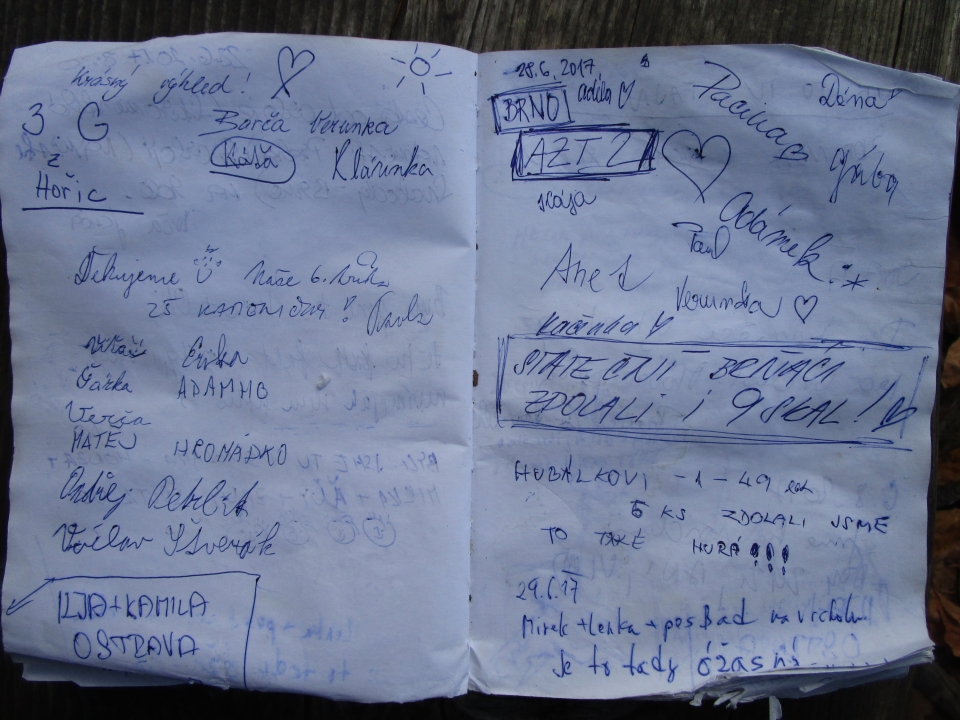 Krásný výhled!
3 G
z
Hořic
Barča Verunka
Káťa Klárunka
Děkujeme Naše 6. třída
ZŠ Pavla
Erika
Šárka ADAMHO
Verča
MATEJ HROMÁDKO
Ondřej
Václav
ILJA+KAMILA
OSTRAVA
28.6.2017
BRNO Adéla
AZT 2
Kája
Dána
Gába
Adámek
Pavl
Anet
Verunka
Kačenka
STATEČNÍ BRŇÁCI
ZDOLALI I 9 SKAL!
HUBÁLKOVI -1-49 let
5 KS ZDOLALI JSME
TO TAKÉ HURÁ !!!
29.6.17
Mirek+Lenka+pes Bad na vrcholu.
Je to tady úžasné.......